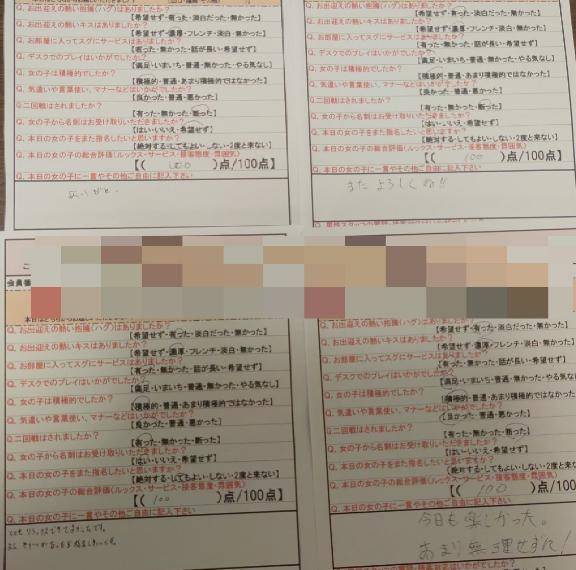 Q. お出迎えの熱い抱擁(ハグ)はありましたか?
【希望せず・有った・淡白だった・無かった】
Q. お出迎えの熱いキスはありましたか?
【希望せず・濃厚・フレンチ・淡白・無かった】
Q. お部屋に入ってスグにサービスはありましたか?
【有った・無かった・話が長い・希望せず】
Q. デスクでのプレイはいかがでしたか?
【満足・いまいち・普通・無かった・やる気なし】
Q. 女の子は積極的でしたか?
【積極的・普通・あまり積極的ではなかった】
Q. 気遣いや言葉使い、マナーなどはいかがでしたか?
【良かった・普通・悪かった】
Q.二回戦はされましたか?
【有った・無かった・断った】
Q. 女の子から名刺はお受け取りいただきましたか?
【はい・いいえ・希望せず】
Q. 本日の女の子をまた指名したいと思いますか?
【絶対する・してもよい・しない・2度と来ない】
Q. 本日の女の子の総合評価(ルックス・サービス・接客態度・雰囲気)
【( 100 )点/100点】
Q. 本日の女の子に一言やその他ご自由に記入下さい
ありがと。
Q. お出迎えの熱い抱擁(ハグ)はありましたか?
【希望せず・有った・淡白だった・無かった】
Q. お出迎えの熱いキスはありましたか?
【希望せず・濃厚・フレンチ・淡白・無かった】
Q. お部屋に入ってスグにサービスはありましたか?
【有った・無かった・話が長い・希望せず】
Q. デスクでのプレイはいかがでしたか?
【満足・いまいち・普通・無かった・やる気なし】
Q. 女の子は積極的でしたか?
【積極的・普通・あまり積極的ではなかった】
Q. 気遣いや言葉使い、マナーなどはいかがでしたか?
【良かった・普通・悪かった】
Q.二回戦はされましたか?
【有った・無かった・断った】
Q. 女の子から名刺はお受け取りいただきましたか?
【はい・いいえ・希望せず】
Q. 本日の女の子をまた指名したいと思いますか?
【絶対する・してもよい・しない・2度と来ない】
Q. 本日の女の子の総合評価(ルックス・サービス・接客態度・雰囲気)
【( 100 )点/100点】
Q. 本日の女の子に一言やその他ご自由に記入下さい
またよろしくね!!
会員番
Q. お出迎えの熱い抱擁(ハグ)はありましたか?
【希望せず・有った・淡白だった・無かった】
Q. お出迎えの熱いキスはありましたか?
【希望せず・濃厚・フレンチ・淡白・無かった】
Q. お部屋に入ってスグにサービスはありましたか?
【有った・無かった・話が長い・希望せず】
Q. デスクでのプレイはいかがでしたか?
【満足・いまいち・普通・無かった・やる気なし】
Q. 女の子は積極的でしたか?
【積極的・普通・あまり積極的ではなかった】
Q. 気遣いや言葉使い、マナーなどはいかがでしたか?
【良かった・普通・悪かった】
Q.二回戦はされましたか?
【有った・無かった・断った】
Q. 女の子から名刺はお受け取りいただきましたか?
【はい・いいえ・希望せず】
Q. 本日の女の子をまた指名したいと思いますか?
【絶対する・してもよい・しない・2度と来ない】
Q. 本日の女の子の総合評価(ルックス・サービス・接客態度・雰囲気)
【( 100 )点/100点】
Q. 本日の女の子に一言やその他ご自由に記入下さい
Q. お出迎えの熱い抱擁(ハグ)はありましたか?
【希望せず・有った・淡白だった・無かった】
Q. お出迎えの熱いキスはありましたか?
【希望せず・濃厚・フレンチ・淡白・無かった】
Q. お部屋に入ってスグにサービスはありましたか?
【有った・無かった・話が長い・希望せず】
Q. デスクでのプレイはいかがでしたか?
【満足・いまいち・普通・無かった・やる気なし】
Q. 女の子は積極的でしたか?
【積極的・普通・あまり積極的ではなかった】
Q. 気遣いや言葉使い、マナーなどはいかがでしたか?
【良かった・普通・悪かった】
Q.二回戦はされましたか?
【有った・無かった・断った】
Q. 女の子から名刺はお受け取りいただきましたか?
【はい・いいえ・希望せず】
Q. 本日の女の子をまた指名したいと思いますか?
【絶対する・してもよい・しない・2度と来
Q. 本日の女の子の総合評価(ルックス・サービス・接客態度・雰囲気)
【( 100 )点/100点】
Q. 本日の女の子に一言やその他ご自由に記入下さい
今日も楽しかった。
あまり無理せずに!